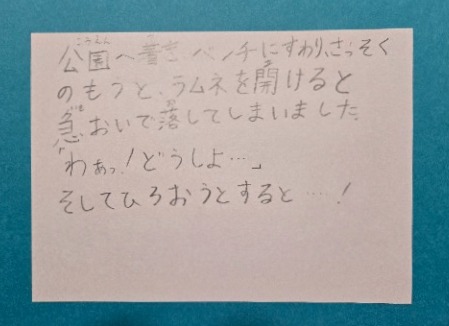 こうえん
公園へ着き、ベンチにすわり、さっそく
のもうと、ラムネを開けると
急おいで落してしまいました。
「わぁっ！どうしよ…」
そしてひろおうとすると……！